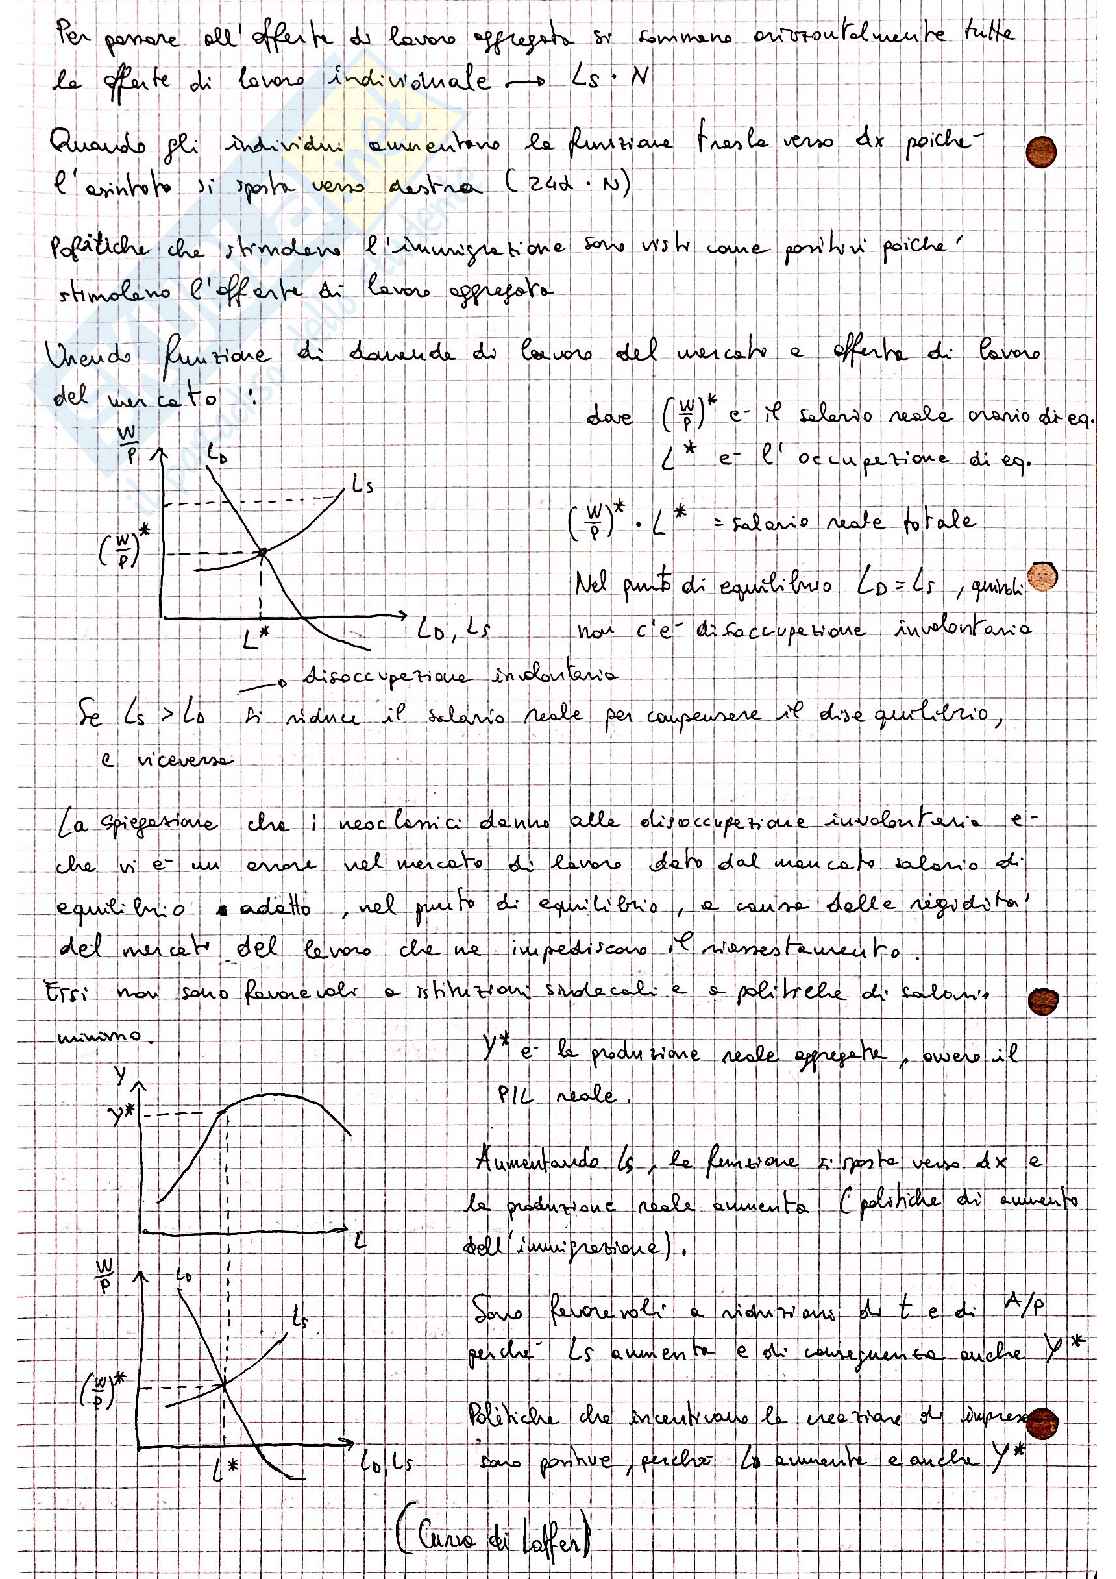 Per passare all'offerta di lavoro aggregata si sommano orizzontalmente tutte
le offerte di lavoro individuale → Ls · N
Quando gli individui aumentano la funzione trasla verso dx poiché
l'asintoto si sposta verso destra (24d · N)
Politiche che stimolano l'immigrazione sono visti come positivi poiché
stimolano l'offerta di lavoro aggregata
Unendo funzione di domanda di lavoro del mercato e offerta di lavoro
del mercato :
dove (W/P)* è il salario reale orario di eq.
L* è l'occupazione di eq.
(W/P)* · L* = salario reale totale
Nel punto di equilibrio LD = Ls , quindi
non c'è disoccupazione involontaria
W/P
LD
Ls
(W/P)*
L*
LD, Ls
→ disoccupazione involontaria
Se Ls > LD si riduce il salario reale per compensare il disequilibrio,
e viceversa
La spiegazione che i neoclassici danno alla disoccupazione involontaria è
che vi è un errore nel mercato di lavoro dato dal mancato salario di
equilibrio adatto, nel punto di equilibrio, a causa delle rigidità
del mercato del lavoro che ne impediscono il riassestamento.
Essi non sono favorevoli a istituzioni sindacali e a politiche di salario
minimo.
Y* è la produzione reale aggregata, ovvero il
PIL reale.
Y
Y*
L
Aumentando Ls, la funzione si sposta verso dx e
la produzione reale aumenta (politiche di aumento
dell'immigrazione).
W/P
LD
Ls
(W/P)*
L*
LD, Ls
Sono favorevoli a riduzioni di t e di A/P
perché Ls aumenta e di conseguenza anche Y*
Politiche che incentivano la creazione di imprese
sono positive, perché LD aumenta e anche Y*
(Curva di Laffer)